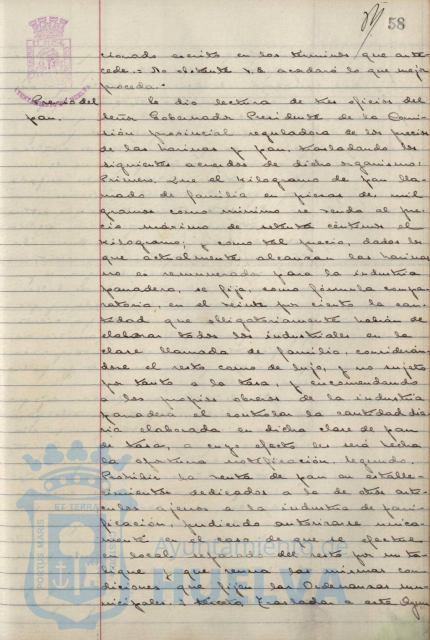 58
cionado escrito en los terminos que ante-
cede.= No obstante V.E. acordará lo que mejor
proceda.=
Precio del
pan.
Se dio lectura de tres oficios del
Señor Gobernador Presidente de la Comi-
sión provincial reguladora de los precios
de las harinas y pan, trasladando los
siguientes acuerdos de dicho organismo:
Primero. Que el kilogramo de pan lla-
mado de familia en piezas de mil
gramos como minimo se venda al pre-
cio máximo de setenta céntimos el
kilogramo; y como tal precio, dados los
que actualmente alcanzan las harinas
no es remunerador para la industria
panadera, se fija, como fórmula compen-
satoria, en el veinte por ciento la can-
tidad que obligatoriamente habrán de
elaborar todos los industriales en la
clase llamada de familia, considerán-
dose el resto como de lujo, y no sujeto
por tanto a la tasa, y encomendando
a los propios obreros de la industria
panadera el controlar la cantidad dia-
ria elaborada en dicha clase de pan
de tasa, a cuyo efecto les será hecha
la oportuna notificación. Segundo.
Prohibir la venta de pan en estable-
cimientos dedicados a la de otros artí-
culos ajenos a la industria de pani-
ficación, pudiendo autorizarse unica-
mente en el caso de que se efectue
en local separado del resto por un ta-
bique y que reuna las mismas con-
diciones que fijan las Ordenanzas mu-
nicipales. Tercero. Trasladar a este Ayun
Ayuntamiento de
HUELVA
PORTUS MARIS ET TERRAE